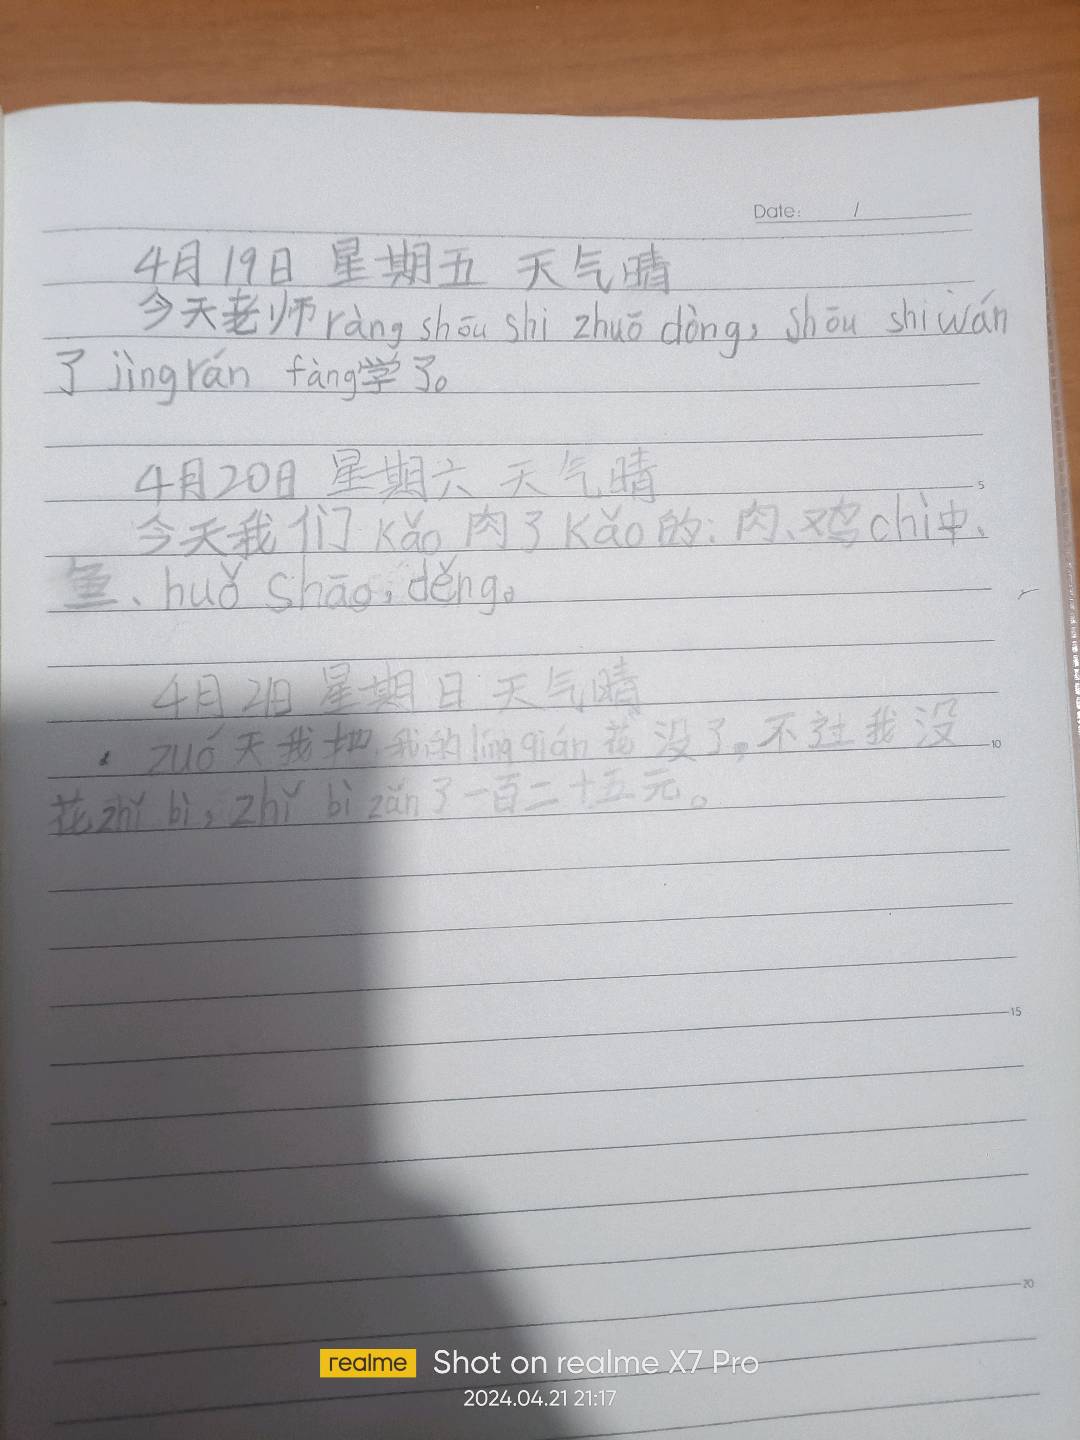 Date: /
4月19日 星期五 天气晴
今天老师ràng shōu shi zhuō dòng，shōu shi wán
了 jìng rán fàng学了。
4月20日 星期六 天气晴
今天我们kǎo肉了kǎo的：肉、鸡chì中、
鱼、huǒ shāo，děng。
5
4月21日 星期日 天气晴
zuó天我把我的líng qián花没了。不过我没
10
花zhǐ bì，zhǐ bì zǎn了一百二十五元。
15
20
realme Shot on realme X7 Pro
2024.04.21 21:17